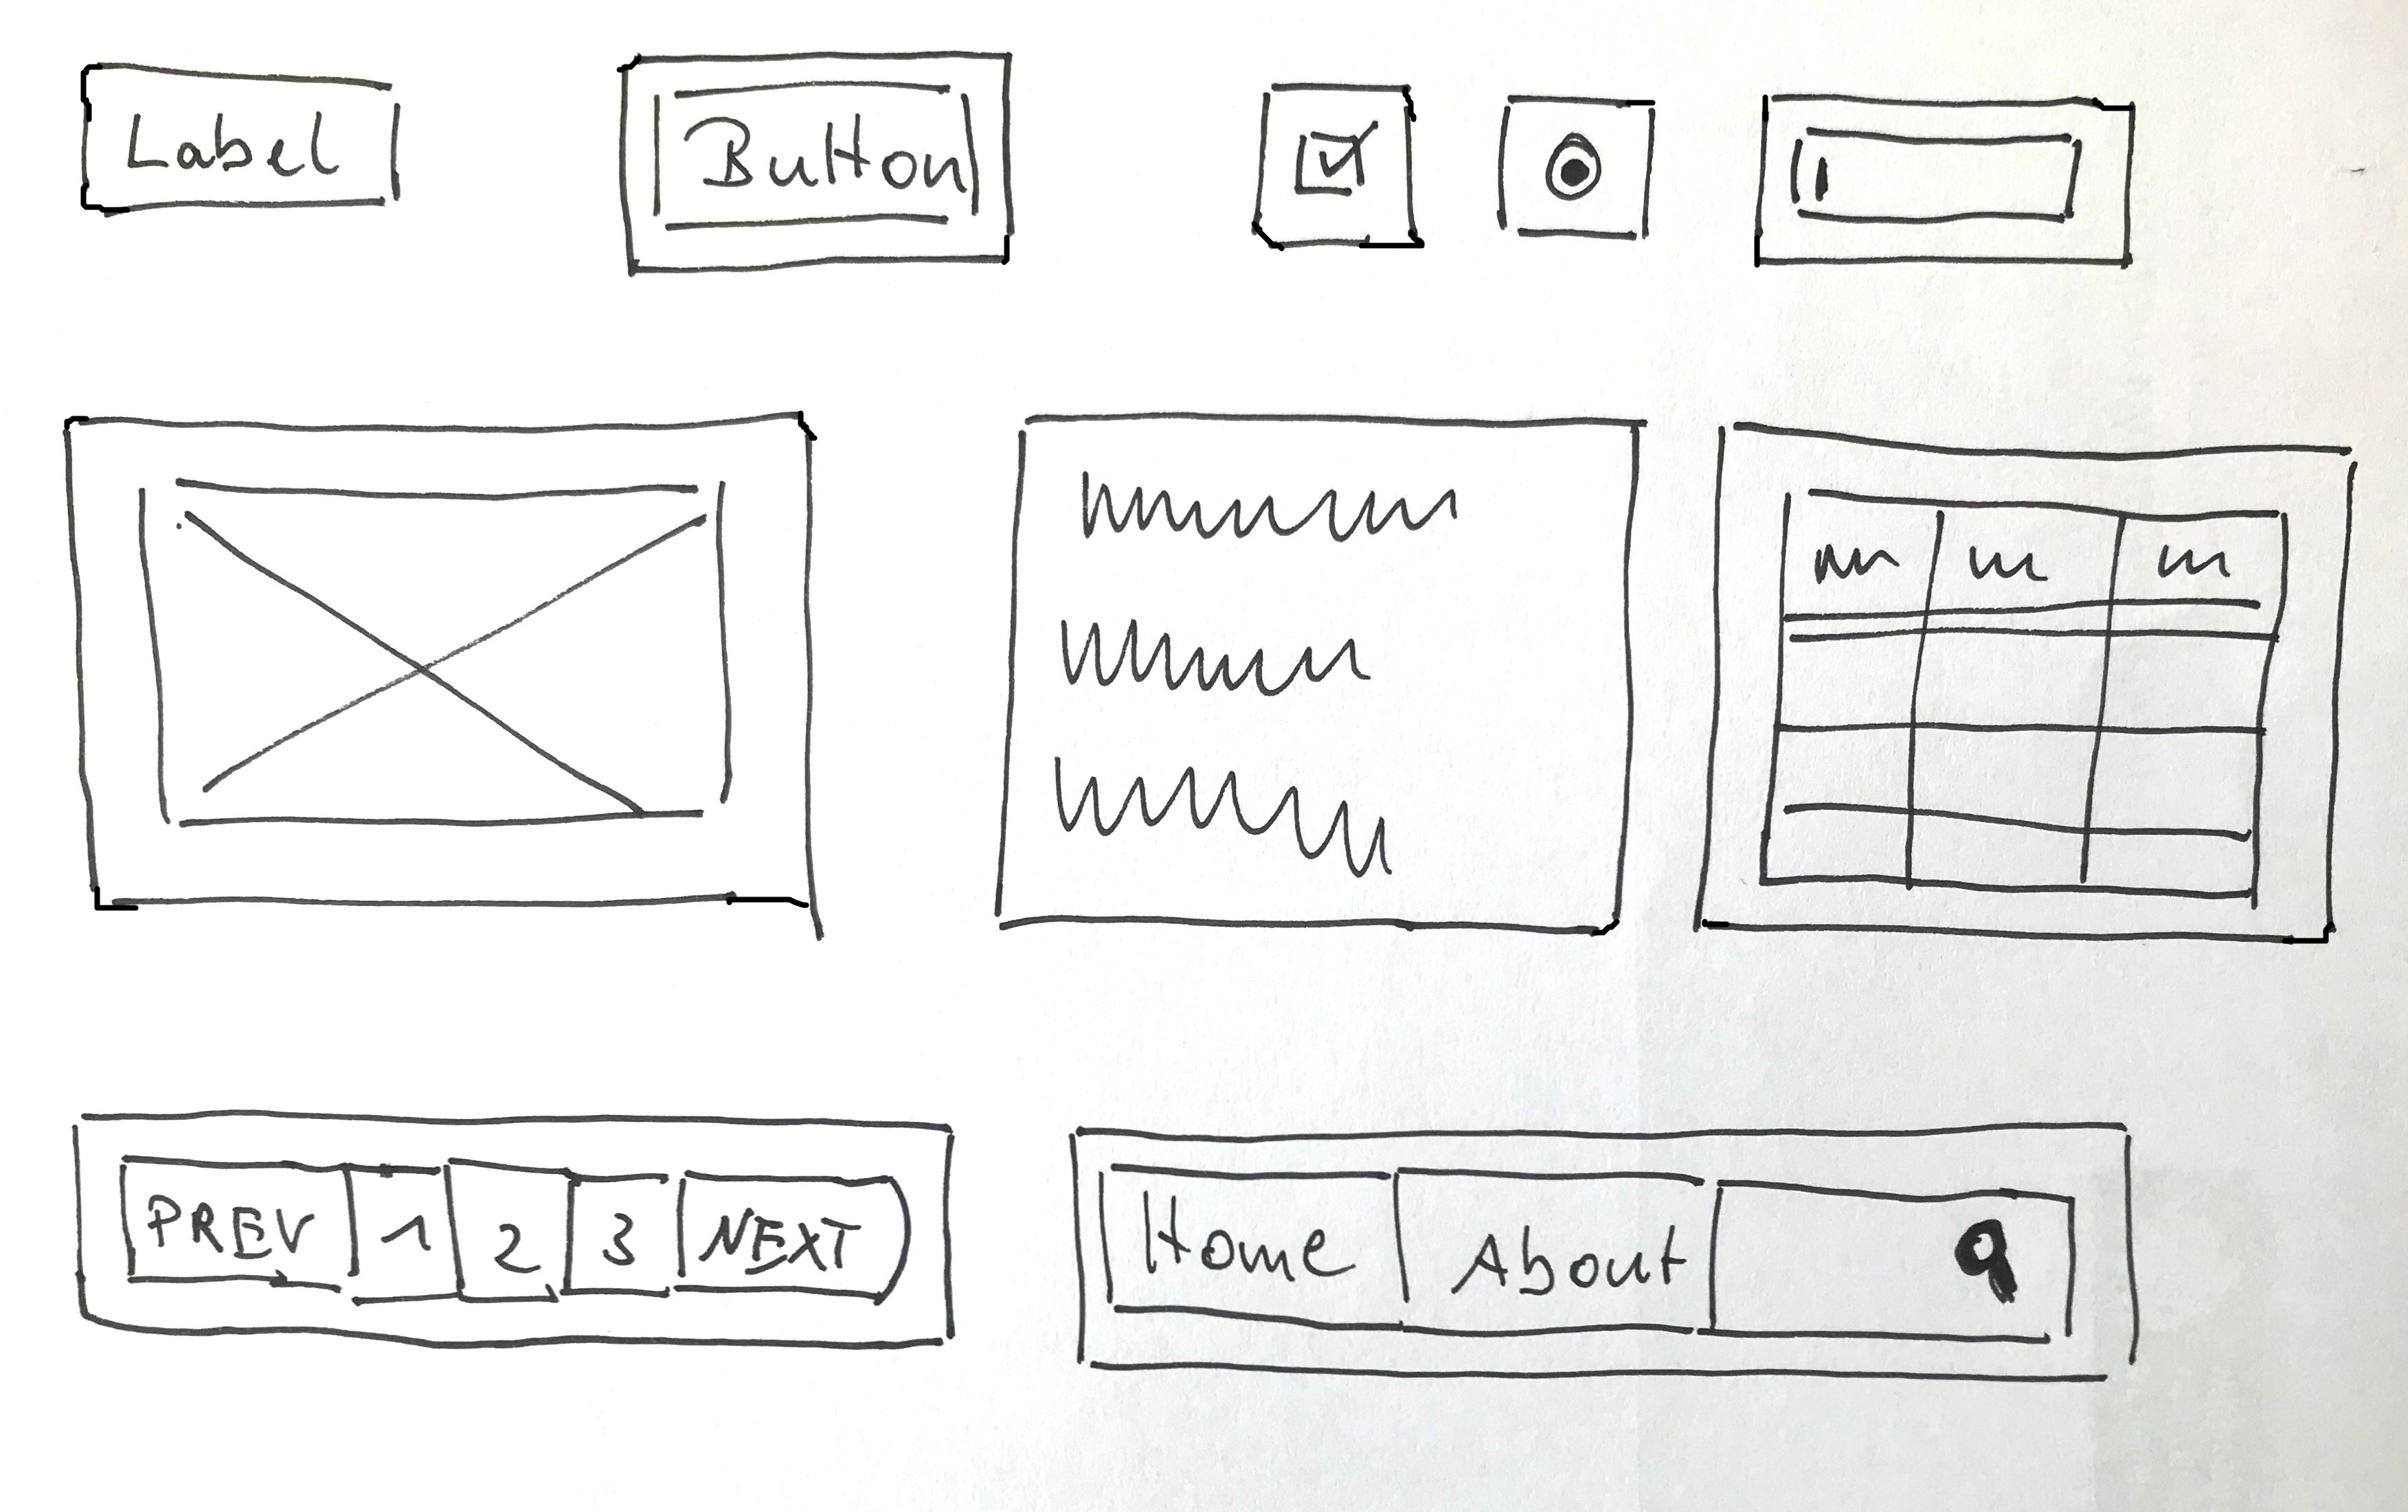 Label
Button
PREV 1 2 3 NEXT
Home About